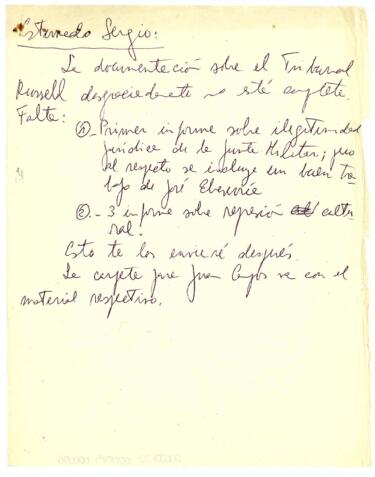 Estimado Sergio:
La documentación sobre el Tribunal
Russell desgraciadamente no está completa.
Falta:
①- Primer informe sobre ilegitimidad
jurídica de la Junta Militar; pero
al respecto se incluye un buen tra-
bajo de José
②.- 3 informe sobre represión cultu-
ral.
Esto te los enviaré después.
La carpeta para Juan Campos va con el
material respectivo.